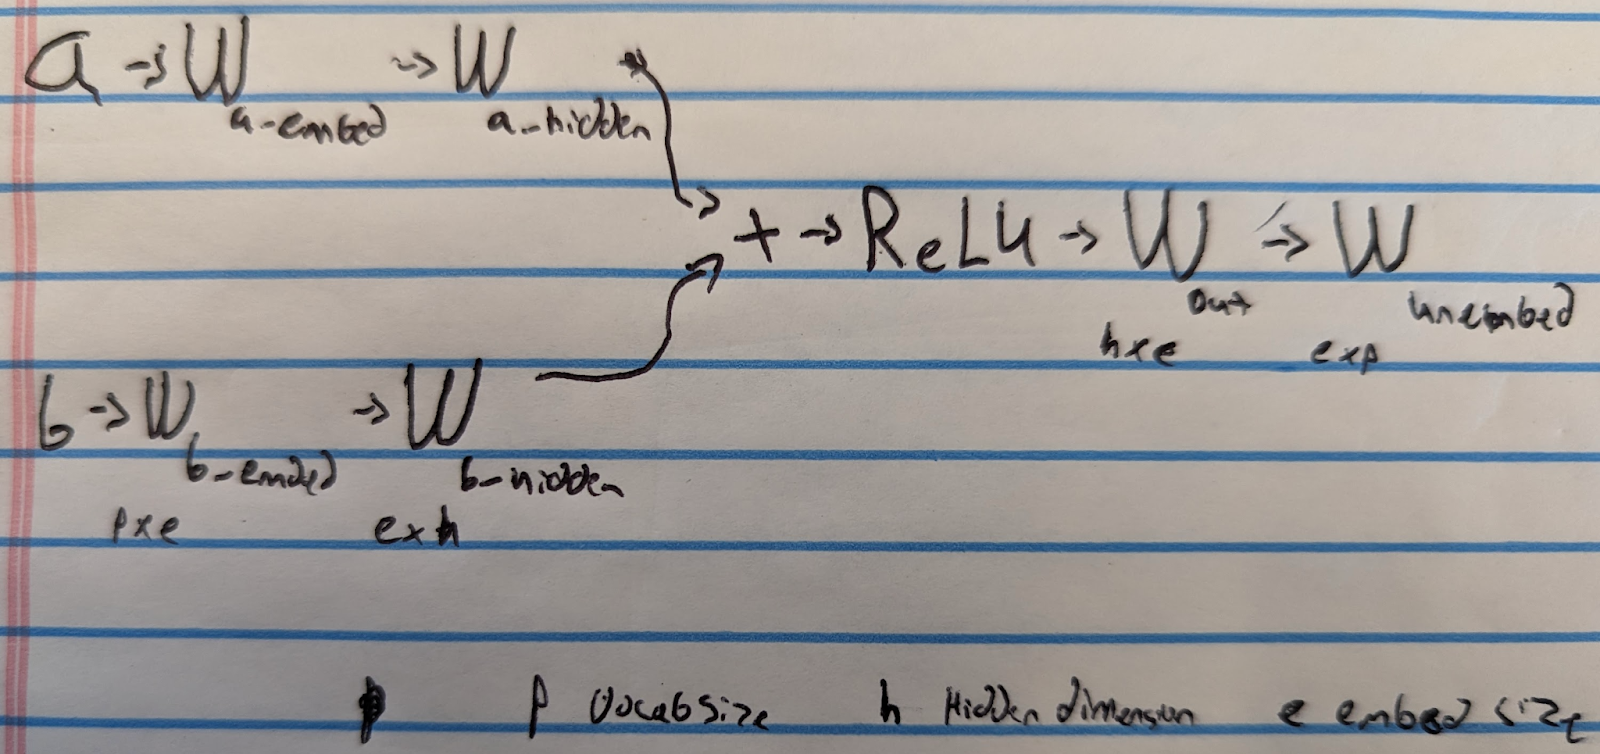 a → W a-embed → W a-hidden
+ → ReLU → W out → W unembed
hxe exp
b → W b-embed → W b-hidden
pxe exh
p vocab size h Hidden dimension e embed size